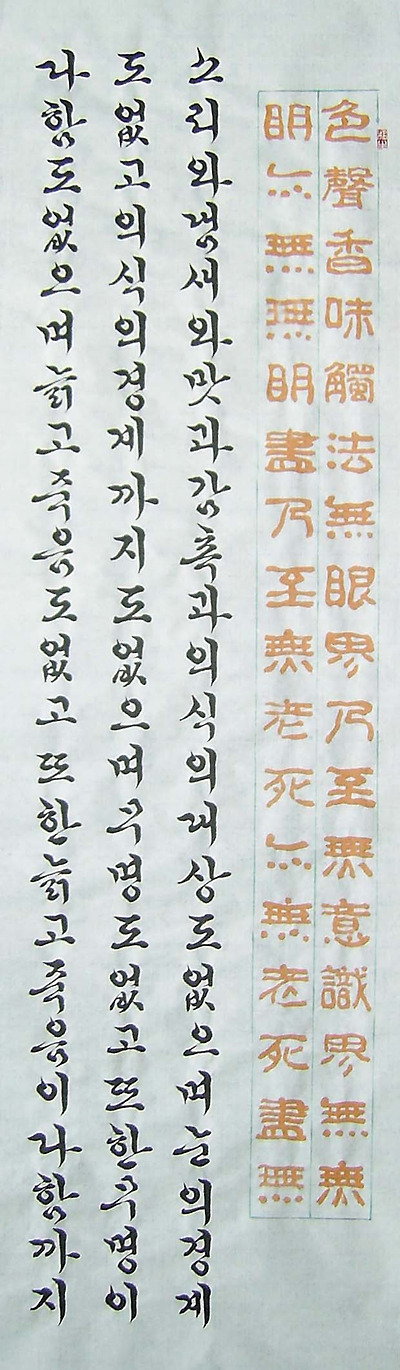 色聲香味觸法無眼界乃至無意識界無無
明亦無無明盡乃至無老死亦無老死盡無
소리와냄새와맛과감촉과의식의대상도없으며눈의경계
도없고의식의경계까지도없으며무명도없고또한무명이
다함도없으며늙고죽음도없고또한늙고죽음이다함까지